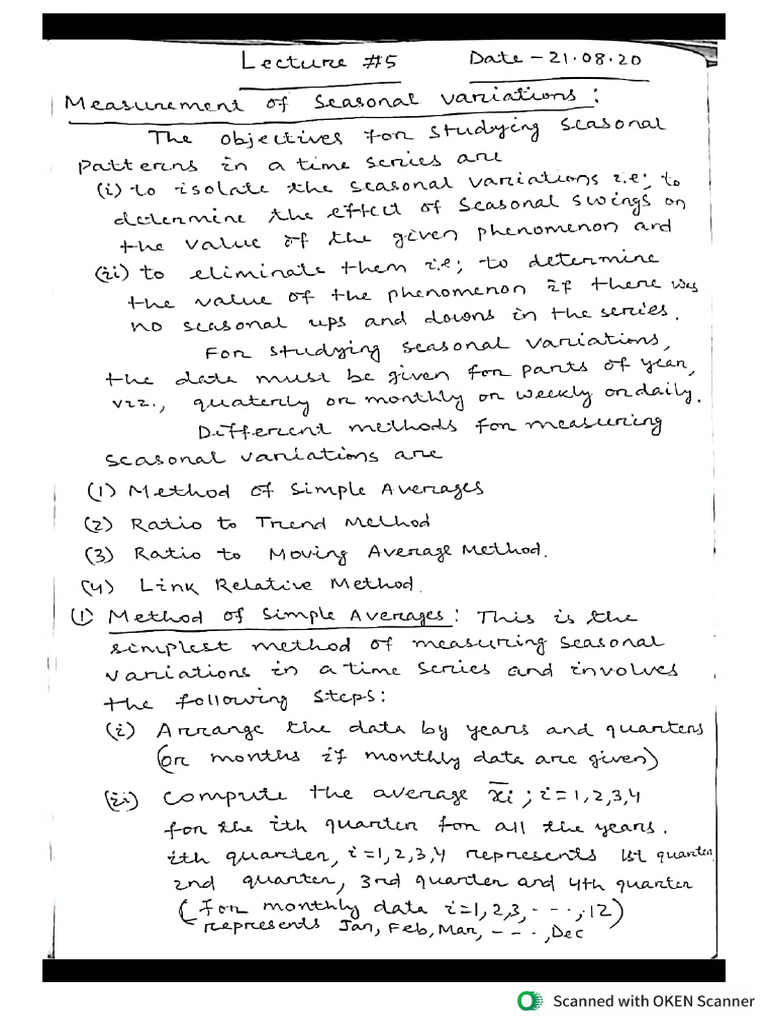 Lecture #5 Date - 21.08.20
Measurement of seasonal variations:
The objectives for studying seasonal
patterns in a time series are
(i) to isolate the seasonal variations i.e; to
determine the effect of seasonal swings on
the value of the given phenomenon and
(ii) to eliminate them i.e; to determine
the value of the phenomenon if there was
no seasonal ups and downs in the series.
For studying seasonal variations,
the data must be given for parts of year,
viz., quaterly or monthly or weekly or daily.
Different methods for measuring
seasonal variations are
(1) Method of Simple Averages
(2) Ratio to Trend Method
(3) Ratio to Moving Average Method.
(4) Link Relative Method.
(1) Method of Simple Averages: This is the
simplest method of measuring seasonal
variations in a time series and involves
the following steps:
(i) Arrange the data by years and quarters
(or months if monthly data are given)
(ii) compute the average x̄i ; i=1,2,3,4
for the ith quarter for all the years.
ith quarter, i=1,2,3,4 represents 1st quarter
2nd quarter, 3rd quarter and 4th quarter
(for monthly data i=1,2,3, - - -, 12)
represents Jan, Feb, Mar, - - -, Dec
Scanned with OKEN Scanner